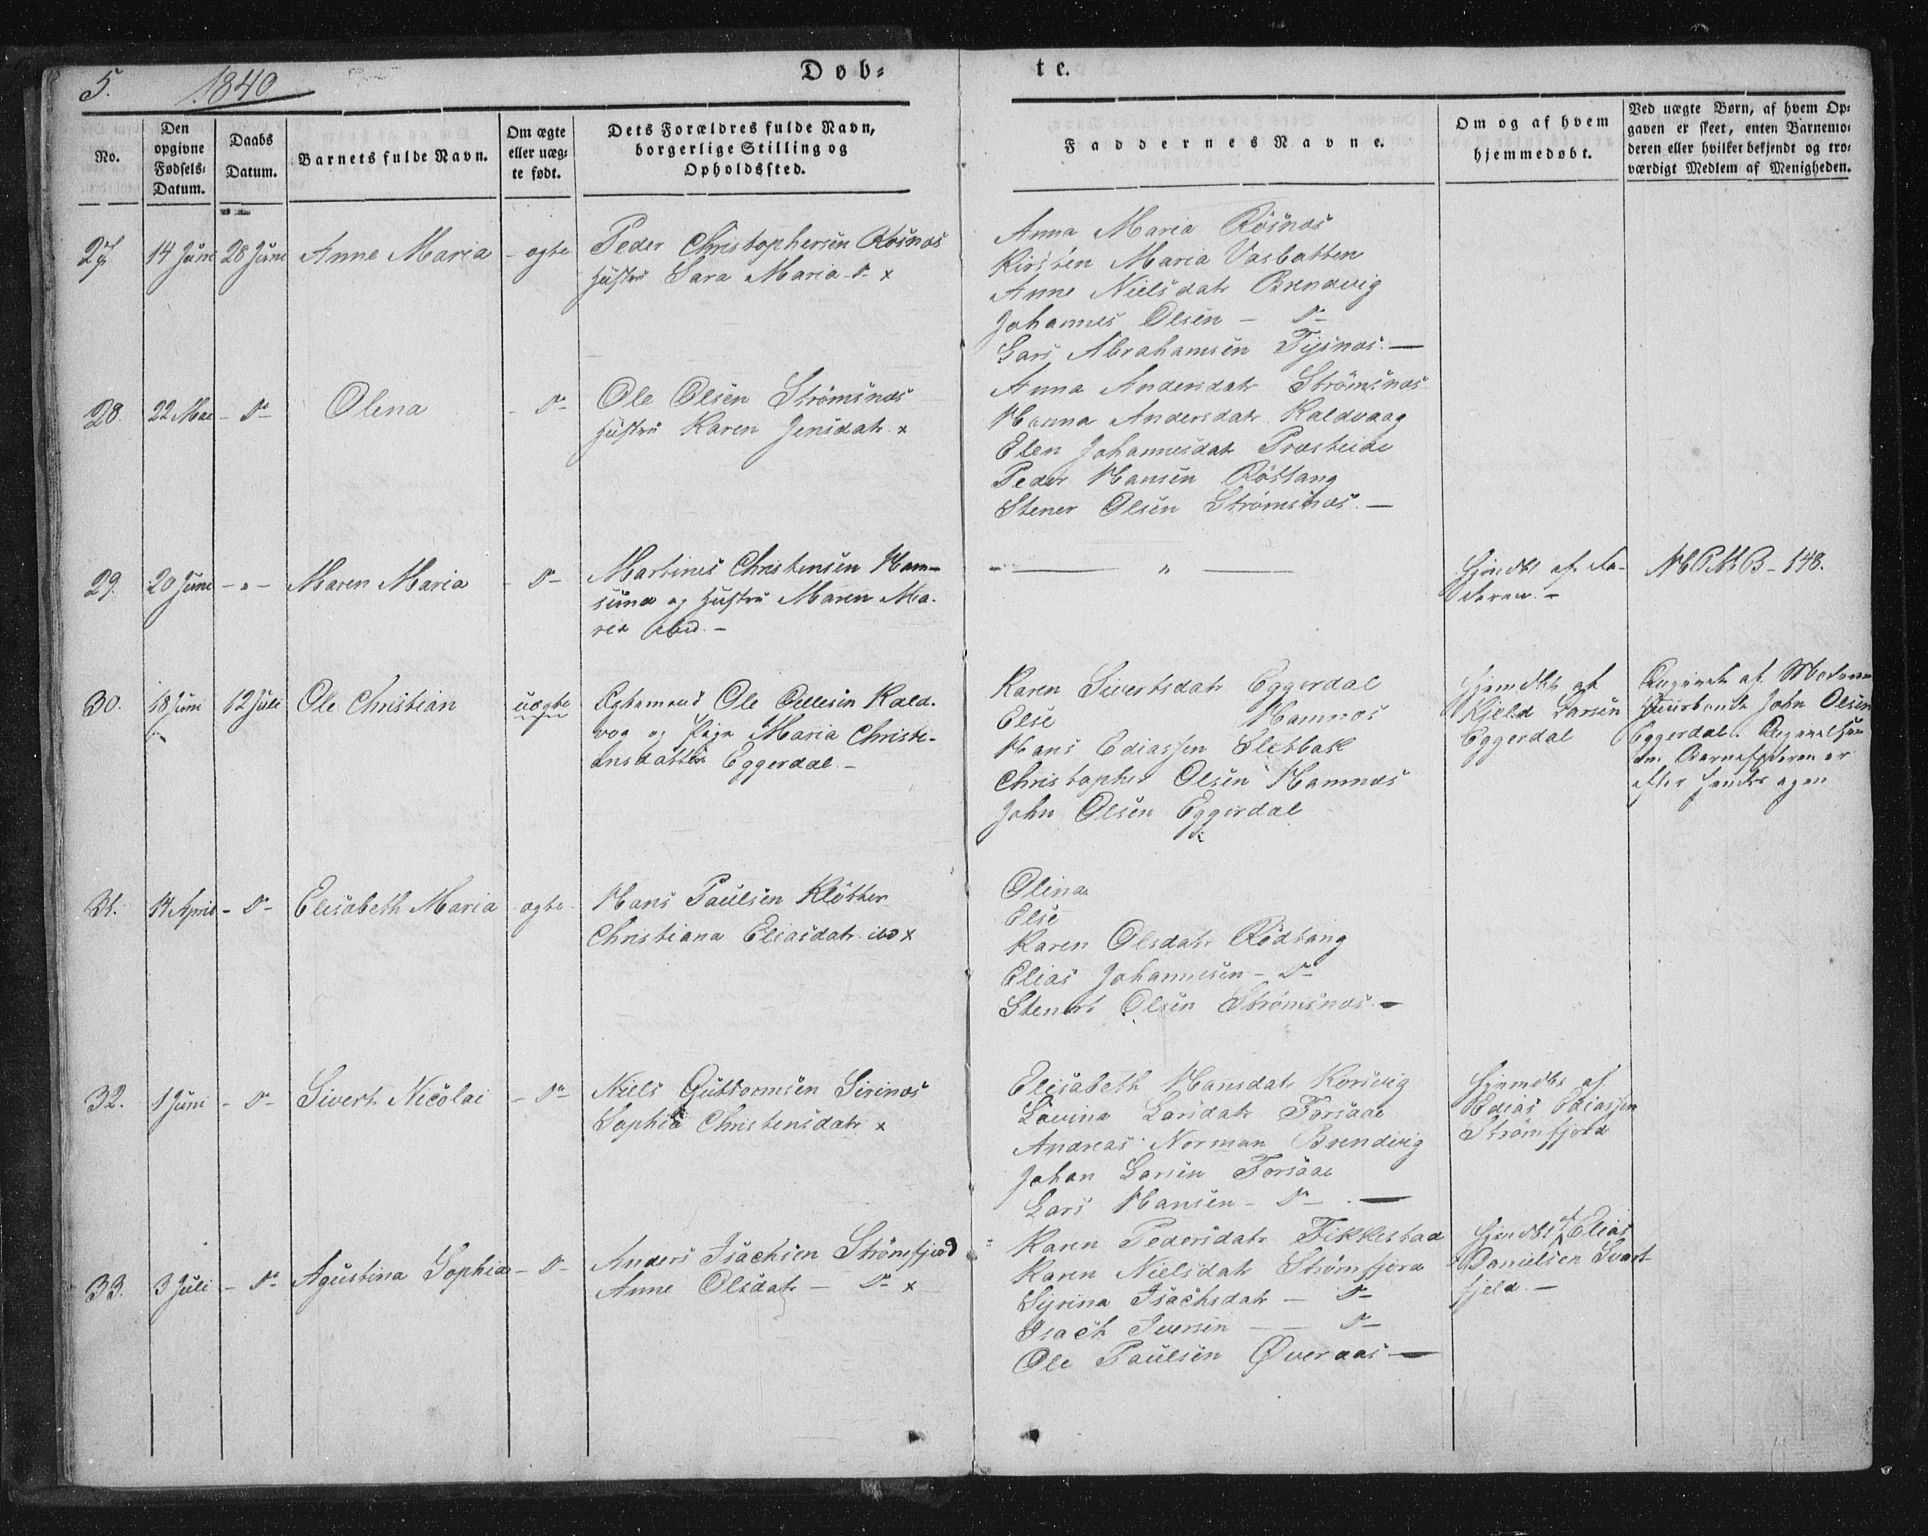 5. 1840 Døb- te.
No.
Den opgivne Fødsels-Datum.
Daabs Datum.
Barnets fulde Navn.
Om ægte eller uæg-te født.
Dets Forældres fulde Navn, borgerlige Stilling og Opholdssted.
Faddernes Navne.
Om og af hvem hjemmedøbt.
Ved uægte Børn, af hvem Op-gaven er skeet, enten Barnemo-deren eller hvilker bekjendt og tro-værdigt Medlem af Menigheden.
27. 14 Juni 28 Juni Anne Maria - ægte
Peder Christophersen Røsnæs
Hustru Sara Maria do x
Anna Maria Røsnæs
Kirsten Maria Vasbotten
Anne Nielsdatr Brendvig
Johannes Olsen - do
Lars Abrahamsen Tysnæs. -
28. 22 Mai - do Olena - do
Ole Olsen Strømsnæs
Hustru Karen Jensdatr x
Anna Andersdatr Strømsnæs
Hanna Andersdatr Kaldvaag
Elen Johannesdatr Presteide
Peder Hansen Røstang
Stener Olsen Strømsnæs. -
29. 20 Juni - " - Maren Maria - do
Martines Christensen Ham-
sund og Hustru Maren Ma-
ria ibid. -
- " -
Hjemdbt af Fa-
deren. -
30. 18 Juni 12 Juli Ole Christian uægte
Ægtemand Ole Ollesen Kald-
vog og Pige Maria Christi-
ansdatter Eggerdal -
Karen Sivertsdatr Eggerdal
Else Hamnæs
Hans Ediassen Sletbak
Christopher Olsen Hamnæs
John Olsen Eggerdal
Hjemdbt af
Kjeld Larsen
Eggerdal
Angivet af Moderen
John Olsen
Eggerdal. Angivelsen
om Barnefaderen er
efter hendes egen
31. 14 April - do Elisabeth Maria ægte
Hans Paulsen Kløther
Christiana Eliasdatr ibd x
Olina
Else
Karen Olsdatr Rødtang
Elias Johannesen - do
Stenert Olsen Strømsnæs. -
32. 1 Juni - do Sivert Nicolai - do
Niels Guttormsen Sirinæs
Sophia Christensdatr x
Elisabeth Hansdatr Korsvig
Lovina Larsdatr Forsaae
Andreas Norman Brendvig
Johan Larsen Forsaae
Lars Hansen - do -
Hjemdbt af
Edias Ediassen
Strømfjord
33. 3 Juli - do Agustina Sophia - do
Anders Isachsen Strømfjord
Anne Olsdatr - do x
Karen Pedersdatr Fikkestad
Karen Nielsdatr Strømfjord
Syrina Isachsdatr - do
Isach Iversen - do
Ole Paulsen Øveraas -
Hjemdbt af Elias
Danielsen Svart-
fjeld. -